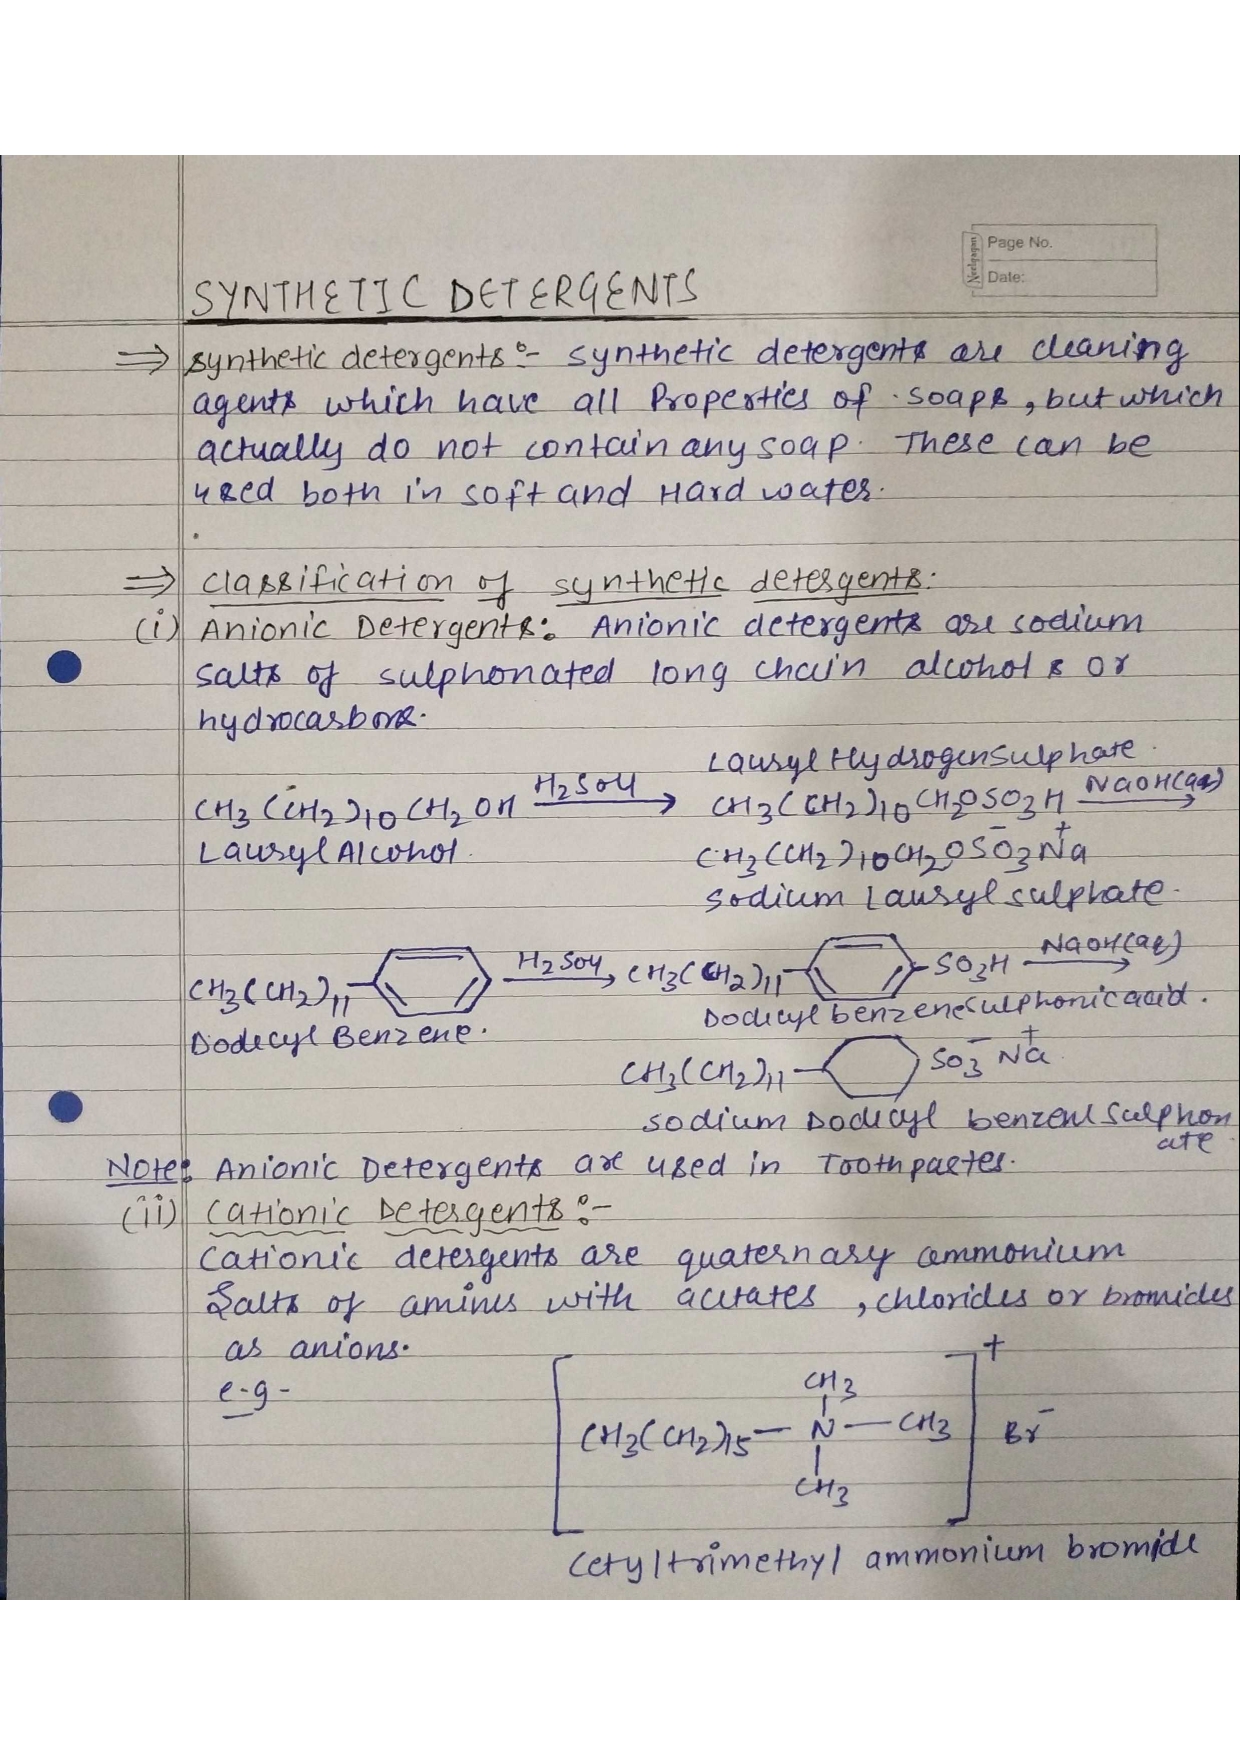 Neelgagan
Page No.
Date:
SYNTHETIC DETERGENTS
⇒ synthetic detergents :- synthetic detergents are cleaning
agents which have all Properties of soaps, but which
actually do not contain any soap. These can be
used both in soft and Hard water.
⇒ classification of synthetic detergents:
(i) Anionic Detergents: Anionic detergents are sodium
salts of sulphonated long chain alcohols or
hydrocarbons.
Lauryl Hydrogensulphate.
CH3(CH2)10CH2OH H2SO4→ CH3(CH2)10CH2OSO3H NaOH(aq)→
Lauryl Alcohol. CH3(CH2)10CH2OSO3⁻Na⁺
Sodium Laurylsulphate.
CH3(CH2)11– H2SO4→ CH3(CH2)11– –SO3H NaOH(aq)→
Dodecyl Benzene. Dodecylbenzenesulphonicacid.
CH3(CH2)11– SO3⁻Na⁺
sodium Dodecyl benzenesulphon
ate
Note: Anionic Detergents are used in Toothpastes.
(ii) Cationic Detergents :-
Cationic detergents are quaternary ammonium
Salts of amines with acetates, chlorides or bromides
as anions.
e.g-
+
CH3
CH3(CH2)15— N — CH3 Br⁻
CH3
Cetyltrimethyl ammonium bromide